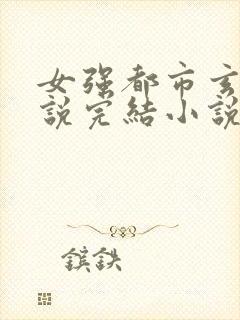 女强都市玄
說完結小說
鑌鉄